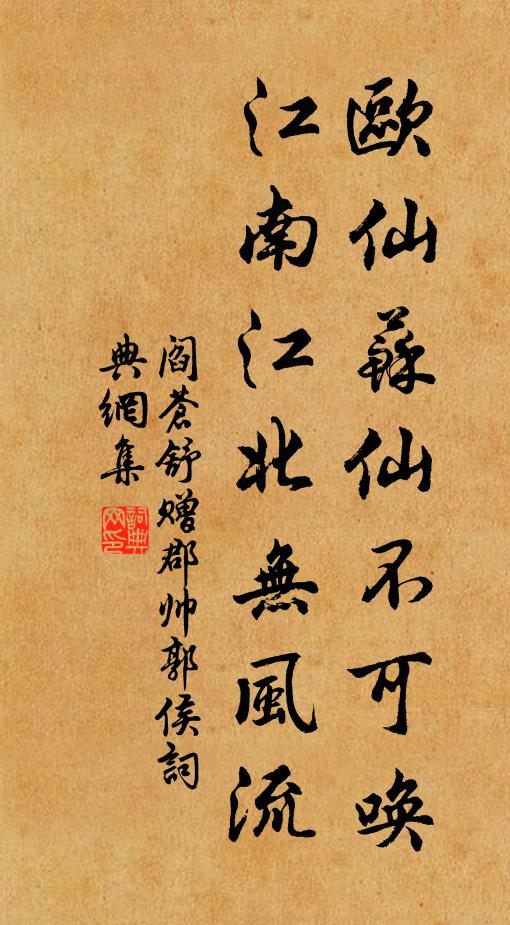 歐仙蘇仙不可唤
江南江北無風流
閻蒼舒赠郡帅郭侯詞
典網集
詞典